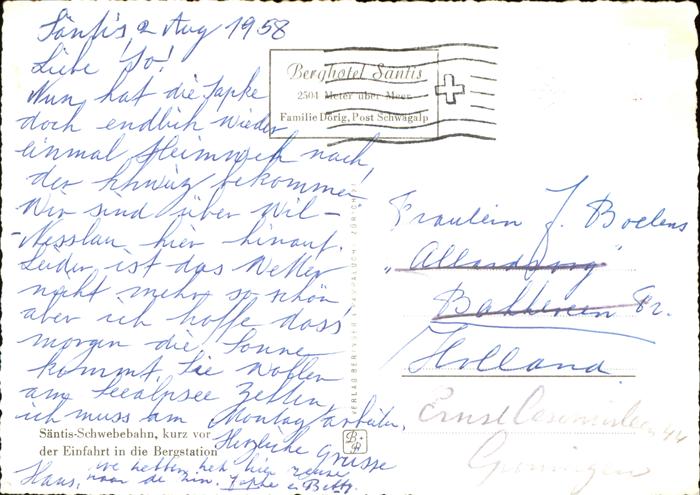 Säntis 2 Aug 1958
Liebe Jo!
Nun hat die Sapke
doch endlich wieder
einmal Heimweh nach
der Schweiz bekommen
Wir sind über Wil-
-Nesslau hier hinauf.
Leider ist das Wetter
nicht mehr so schön
aber ich hoffe dass
morgen die Sonne
kommt. Sie wollen
am Seealpsee Zelten,
ich muss am Montag arbeiten.
Herzliche Grüsse
Hans,
we hebben het hier reuze
naar de zin.
Berghotel Säntis
2504 Meter über Meer
Familie Dörig, Post Schwägalp
Fräulein J. Boelens
"Allardsoog"
Bakkeveen Fr.
Holland
Groningen
Säntis-Schwebebahn, kurz vor
der Einfahrt in die Bergstation